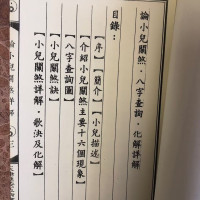 論小兒關煞．八字查詢．化解詳解
目錄：
【序】【簡介】【小兒描述】
【介紹小兒關煞主要十六個現象】
【八字查詢圖】
【小兒關煞訣】
【小兒關煞詳解．歌訣及化解】
論小兒關煞詳解